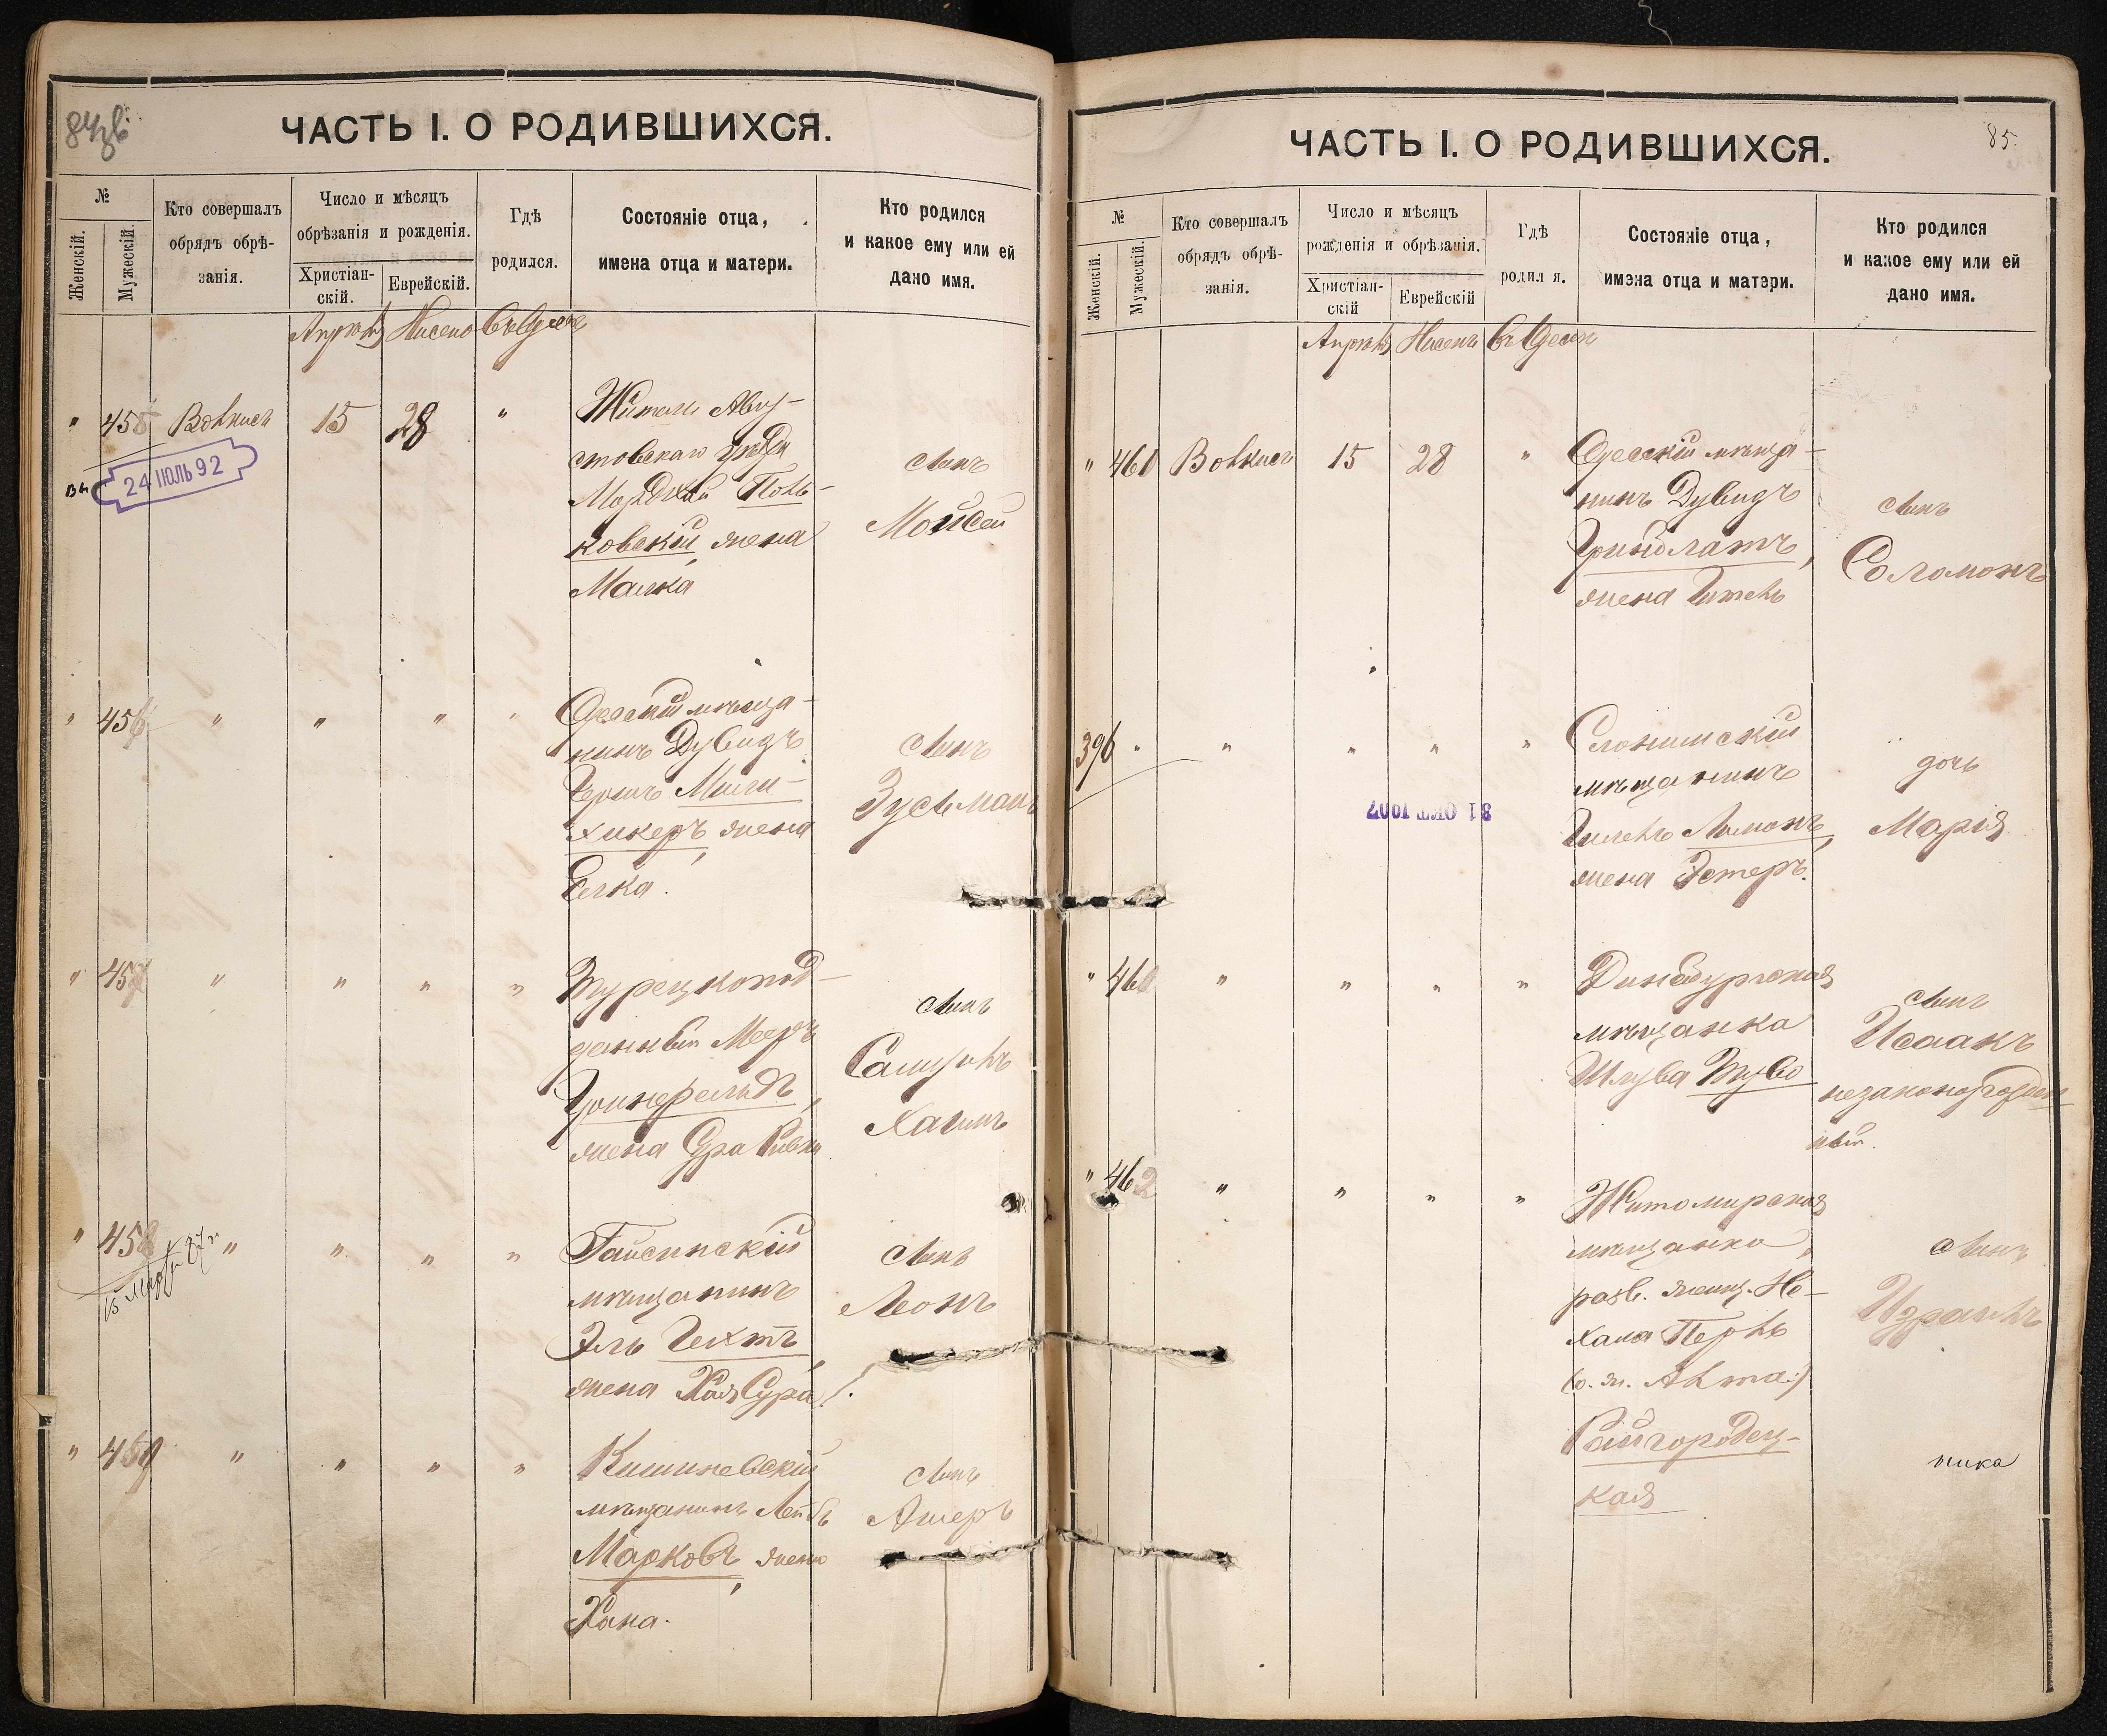 84об.
ЧАСТЬ I. О РОДИВШИХСЯ.
№
Женскій.
Мужескій.
Кто совершалъ
обрядъ обрѣ-
занія.
Число и мѣсяцъ
обрѣзанія и рожденія.
Христіан-
скій.
Еврейскій.
Гдѣ
родился.
Состояніе отца,
имена отца и матери.
Кто родился
и какое ему или ей
дано имя.
Апрѣль
" 455 Волкисъ 15 28 "
24 ІЮЛЬ 92
Житель Авгу-
стовскаго уѣзда
Мордхай Поль-
ковскій, жена
Малка
сынъ
Мойсей
" 456 " " " "
Одесскій мѣща-
нинъ Дувидъ
Гершъ
жена
сынъ
Зусьманъ
" 457 " " " "
Турецкопод-
данный Мееръ
Гринфельдъ,
жена
сынъ
Самуилъ
Хаимъ
" 458 " " " "
Гайсинскій
мѣщанинъ
Эль Гехтъ,
жена Хая Сура
сынъ
Леонъ
" 459 " " " "
Кишиневскій
мѣщанинъ Лейбъ
Марковъ, жена
Хана.
сынъ
Ашеръ
85.
ЧАСТЬ I. О РОДИВШИХСЯ.
№
Женскій.
Мужескій.
Кто совершалъ
обрядъ обрѣ-
занія.
Число и мѣсяцъ
рожденія и обрѣзанія.
Христіан-
скій
Еврейскій
Гдѣ
родил я.
Состояніе отца,
имена отца и матери.
Кто родился
и какое ему или ей
дано имя.
Апрѣль
" Волкисъ 15 28 "
Одесскій мѣща-
нинъ Дувидъ
Гринблатъ,
жена Гитель
сынъ
Соломонъ
396 " " " " "
Слонимскій
мѣщанинъ
Лимонъ,
жена Эстеръ.
дочь
Марія
31 ОКТ 1907
" " " " "
Динабургская
мѣщанка
сынъ
Исаакъ
незаконорожден
ный.
" 462 " " " "
Житомирская
мѣщанка,
разв. женщ. Не-
хама Перль
Райгородец-
кая
сынъ
Израиль